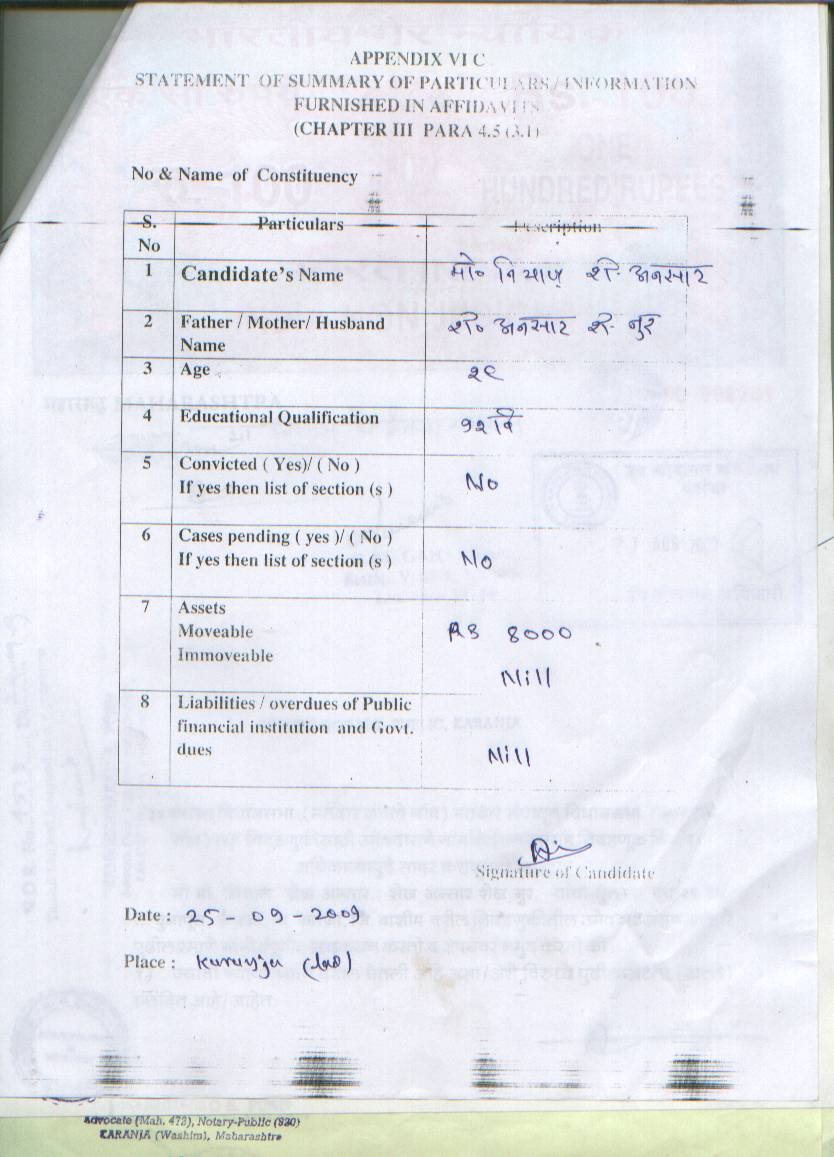 APPENDIX VI C
STATEMENT OF SUMMARY OF PARTICULARS / INFORMATION
FURNISHED IN AFFIDAVITS
(CHAPTER III PARA 4.5 (3.1)
No & Name of Constituency
S. No Particulars Description
1 Candidate's Name मो० नियाज़ शे. अनसार
2 Father / Mother/ Husband Name शे० अनसार शे. नुर
3 Age २९
4 Educational Qualification १२वि
5 Convicted ( Yes)/ ( No )
If yes then list of section (s ) No
6 Cases pending ( yes )/ ( No )
If yes then list of section (s ) No
7 Assets
Moveable RS 8000
Immoveable Nill
8 Liabilities / overdues of Public
financial institution and Govt.
dues Nill
Signature of Candidate
Date : 25-09-2009
Place :
Advocate (Mah. 473), Notary-Public (S20)
KARANJA (Washim), Maharashtra